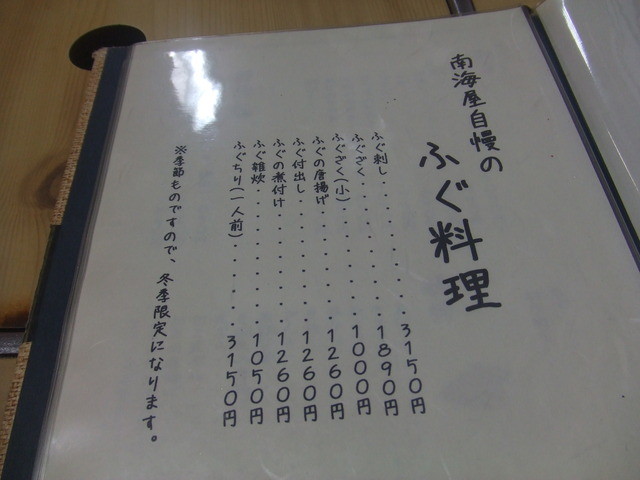 南海屋自慢の
ふぐ料理
ふぐ刺し・・・・・・・・・・3150円
ふぐざく・・・・・・・・・・1890円
ふぐざく(小)・・・・・・・・1000円
ふぐの唐揚げ・・・・・・・・1260円
ふぐ付出し・・・・・・・・・1260円
ふぐの煮付け・・・・・・・・1260円
ふぐ雑炊・・・・・・・・・・1050円
ふぐちり(一人前)・・・・・・3150円
※季節ものですので、冬季限定になります。